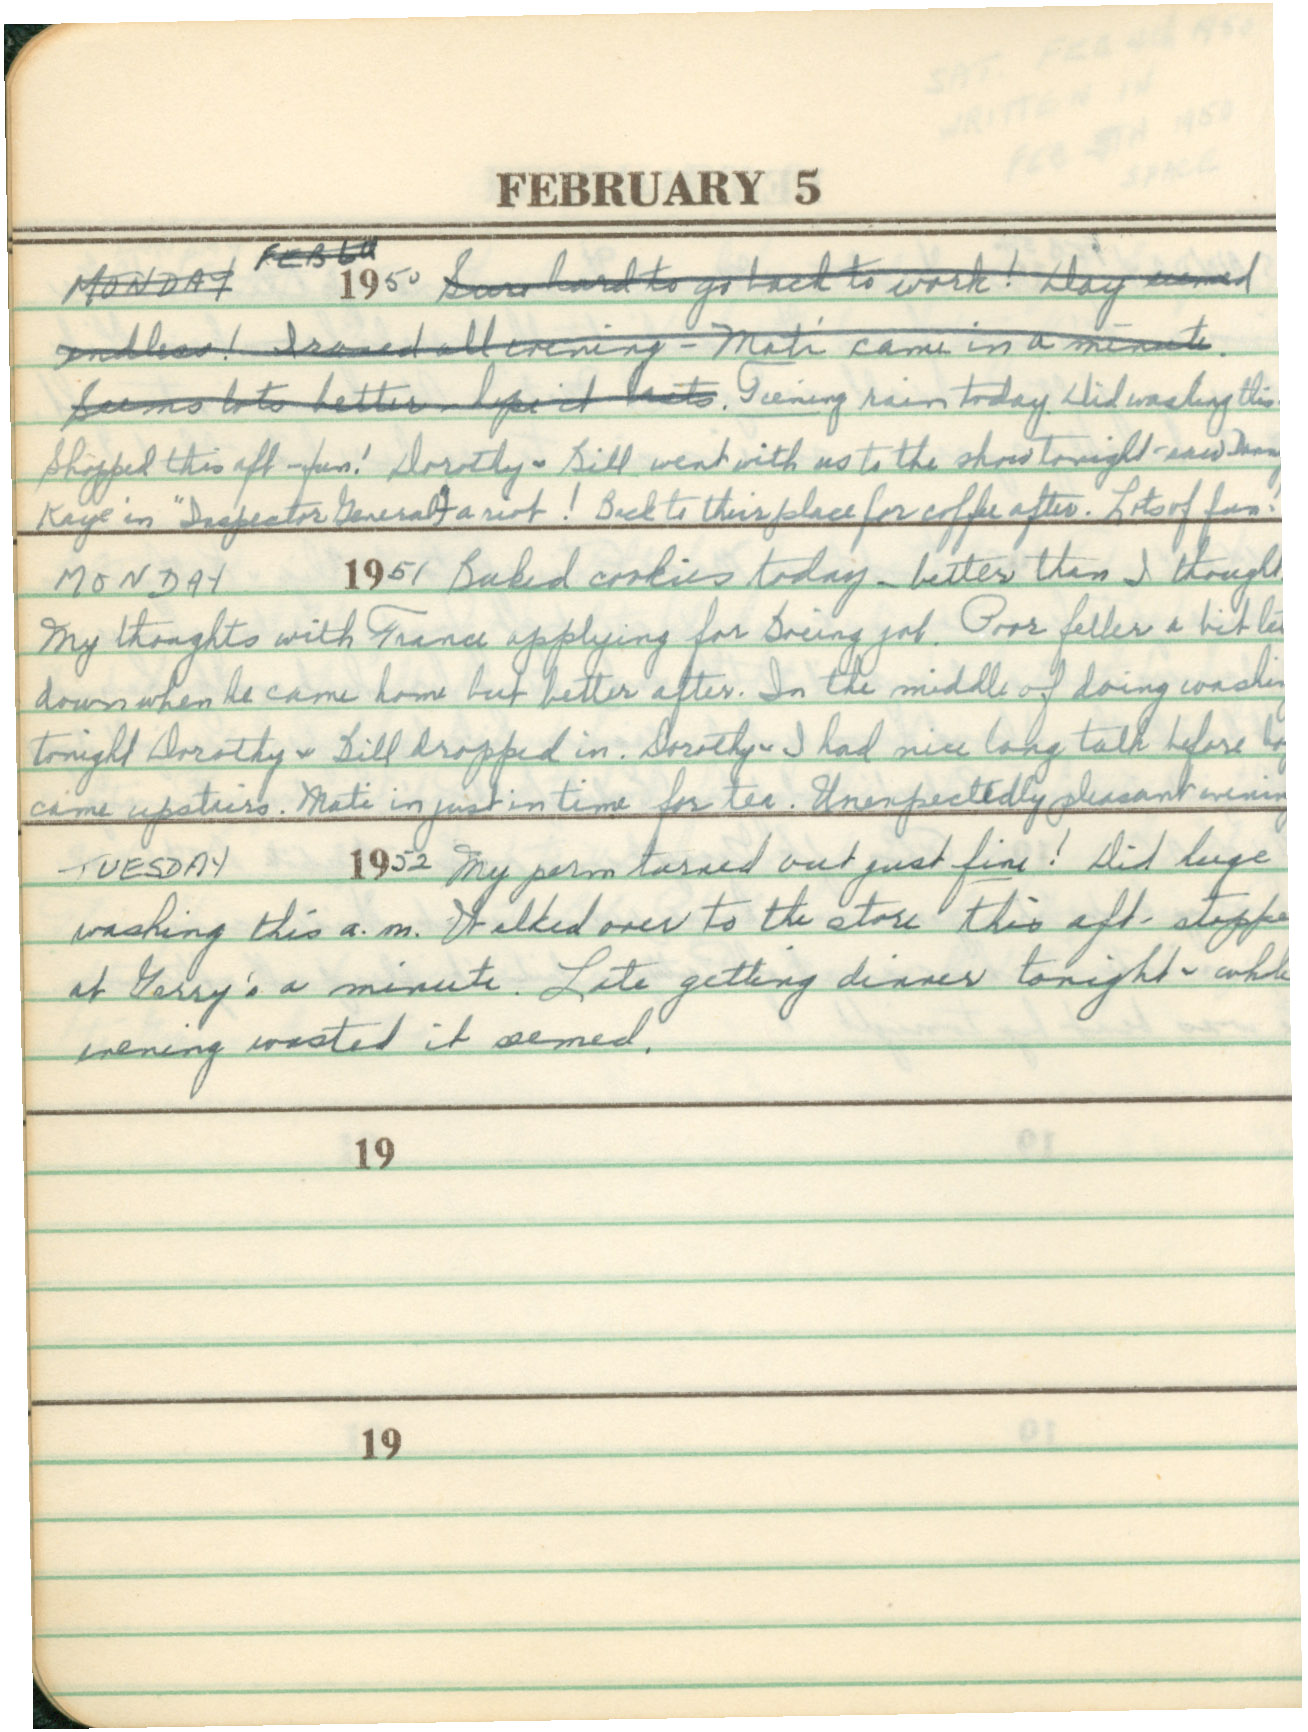 FEBRUARY 5
FEB 6th
MONDAY 1950 Sure hard to go back to work! Day seemed
endless! Ironed all evening - Mati came in a minute.
Seems lots better - hope it lasts. Teeming rain today. Did washing this
Shopped this aft - fun! Dorothy & Bill went with us to the show tonight - saw Danny
Kaye in "Inspector General" a riot! Back to their place for coffee after. Lots of fun!
MONDAY 1951 Baked cookies today - better than I thought
My thoughts with France applying for Boeing job. Poor feller a bit let
down when he came home but better after. In the middle of doing washing
tonight Dorothy & Bill dropped in. Dorothy & I had nice long talk before
came upstairs. Mati in just in time for tea. Unexpectedly pleasant evening
TUESDAY 1952 My perm turned out just fine! Did huge
washing this a.m. Walked over to the store this aft - stoppe
at Gerry's a minute. Late getting dinner tonight & whole
evening wasted it seemed.
19
19